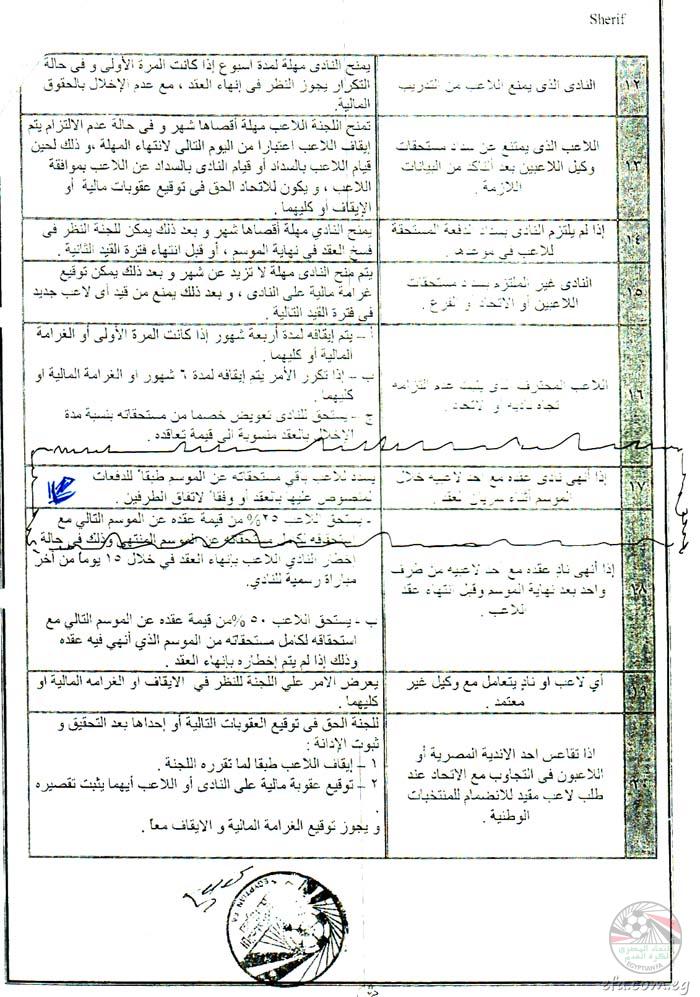 Sherif
١٢
النادى الذى يمنع اللاعب من التدريب
يمنح النادى مهلة لمدة اسبوع إذا كانت المرة الأولى و فى حالة
التكرار يجوز النظر فى إنهاء العقد ، مع عدم الإخلال بالحقوق
المالية.
١٣
اللاعب الذى يمتنع عن سداد مستحقات
وكيل اللاعبين بعد التأكد من البيانات
اللازمة .
تمنح اللجنة اللاعب مهلة أقصاها شهر و فى حالة عدم الالتزام يتم
إيقاف اللاعب اعتبارا من اليوم التالى لانتهاء المهلة ،و ذلك لحين
قيام اللاعب بالسداد أو قيام النادى بالسداد عن اللاعب بموافقة
اللاعب ، و يكون للاتحاد الحق فى توقيع عقوبات مالية أو
الإيقاف أو كليهما .
١٤
إذا لم يلتزم النادى بسداد الدفعة المستحقة
للاعب فى موعدها .
يمنح النادي مهلة أقصاها شهر و بعد ذلك يمكن للجنة النظر فى
فسخ العقد فى نهاية الموسم ، أو قبل انتهاء فترة القيد الثانية .
١٥
النادى غير الملتزم بسداد مستحقات
اللاعبين أو الاتحاد و الفرع .
يتم منح النادى مهلة لا تزيد عن شهر و بعد ذلك يمكن توقيع
غرامة مالية على النادى ، و بعد ذلك يمنع من قيد أى لاعب جديد
فى فترة القيد التالية .
١٦
اللاعب المحترف الذى يثبت عدم التزامه
تجاه ناديه او الاتحاد .
أ – يتم إيقافه لمدة أربعة شهور إذا كانت المرة الأولى أو الغرامة
المالية أو كليهما .
ب – إذا تكرر الأمر يتم إيقافه لمدة ٦ شهور او الغرامة المالية او
كليهما .
ج - يستحق للنادى تعويض خصما من مستحقاته بنسبة مدة
الإخلال بالعقد منسوبة الى قيمة تعاقده .
١٧
إذا أنهى نادى عقده مع احد لاعبيه خلال
الموسم أثناء سريان العقد .
يسدد للاعب باقي مستحقاته عن الموسم طبقا للدفعات
المنصوص عليها بالعقد أو وفقا لاتفاق الطرفين .
١٨
إذا أنهى ناد عقده مع احد لاعبيه من طرف
واحد بعد نهاية الموسم وقبل انتهاء عقد
اللاعب .
- يستحق اللاعب ٢٥% من قيمة عقده عن الموسم التالي مع
استحقاقه لكامل مستحقاته عن الموسم المنتهي وذلك في حالة
اخطار النادي اللاعب بإنهاء العقد في خلال ١٥ يوماً من آخر
مباراة رسمية للنادي.
ب - يستحق اللاعب ٥٠ %من قيمة عقده عن الموسم التالي مع
استحقاقه لكامل مستحقاته من الموسم الذي أنهي فيه عقده
وذلك إذا لم يتم إخطاره بإنهاء العقد .
١٩
أي لاعب او ناد يتعامل مع وكيل غير
معتمد .
يعرض الامر علي اللجنة للنظر في الايقاف او الغرامه المالية او
كليهما .
٢٠
اذا تقاعس احد الاندية المصرية أو
اللاعبون فى التجاوب مع الاتحاد عند
طلب لاعب مقيد للانضمام للمنتخبات
الوطنية .
للجنة الحق فى توقيع العقوبات التالية أو إحداها بعد التحقيق و
ثبوت الإدانة :
١ – إيقاف اللاعب طبقا لما تقرره اللجنة .
٢ – توقيع عقوبة مالية على النادى أو اللاعب أيهما يثبت تقصيره
.
و يجوز توقيع الغرامة المالية و الايقاف معاً .
EGYPTIAN FA
الاتحاد المصرى
لكرة القدم
EGYPTIAN FA
efa.com.eg